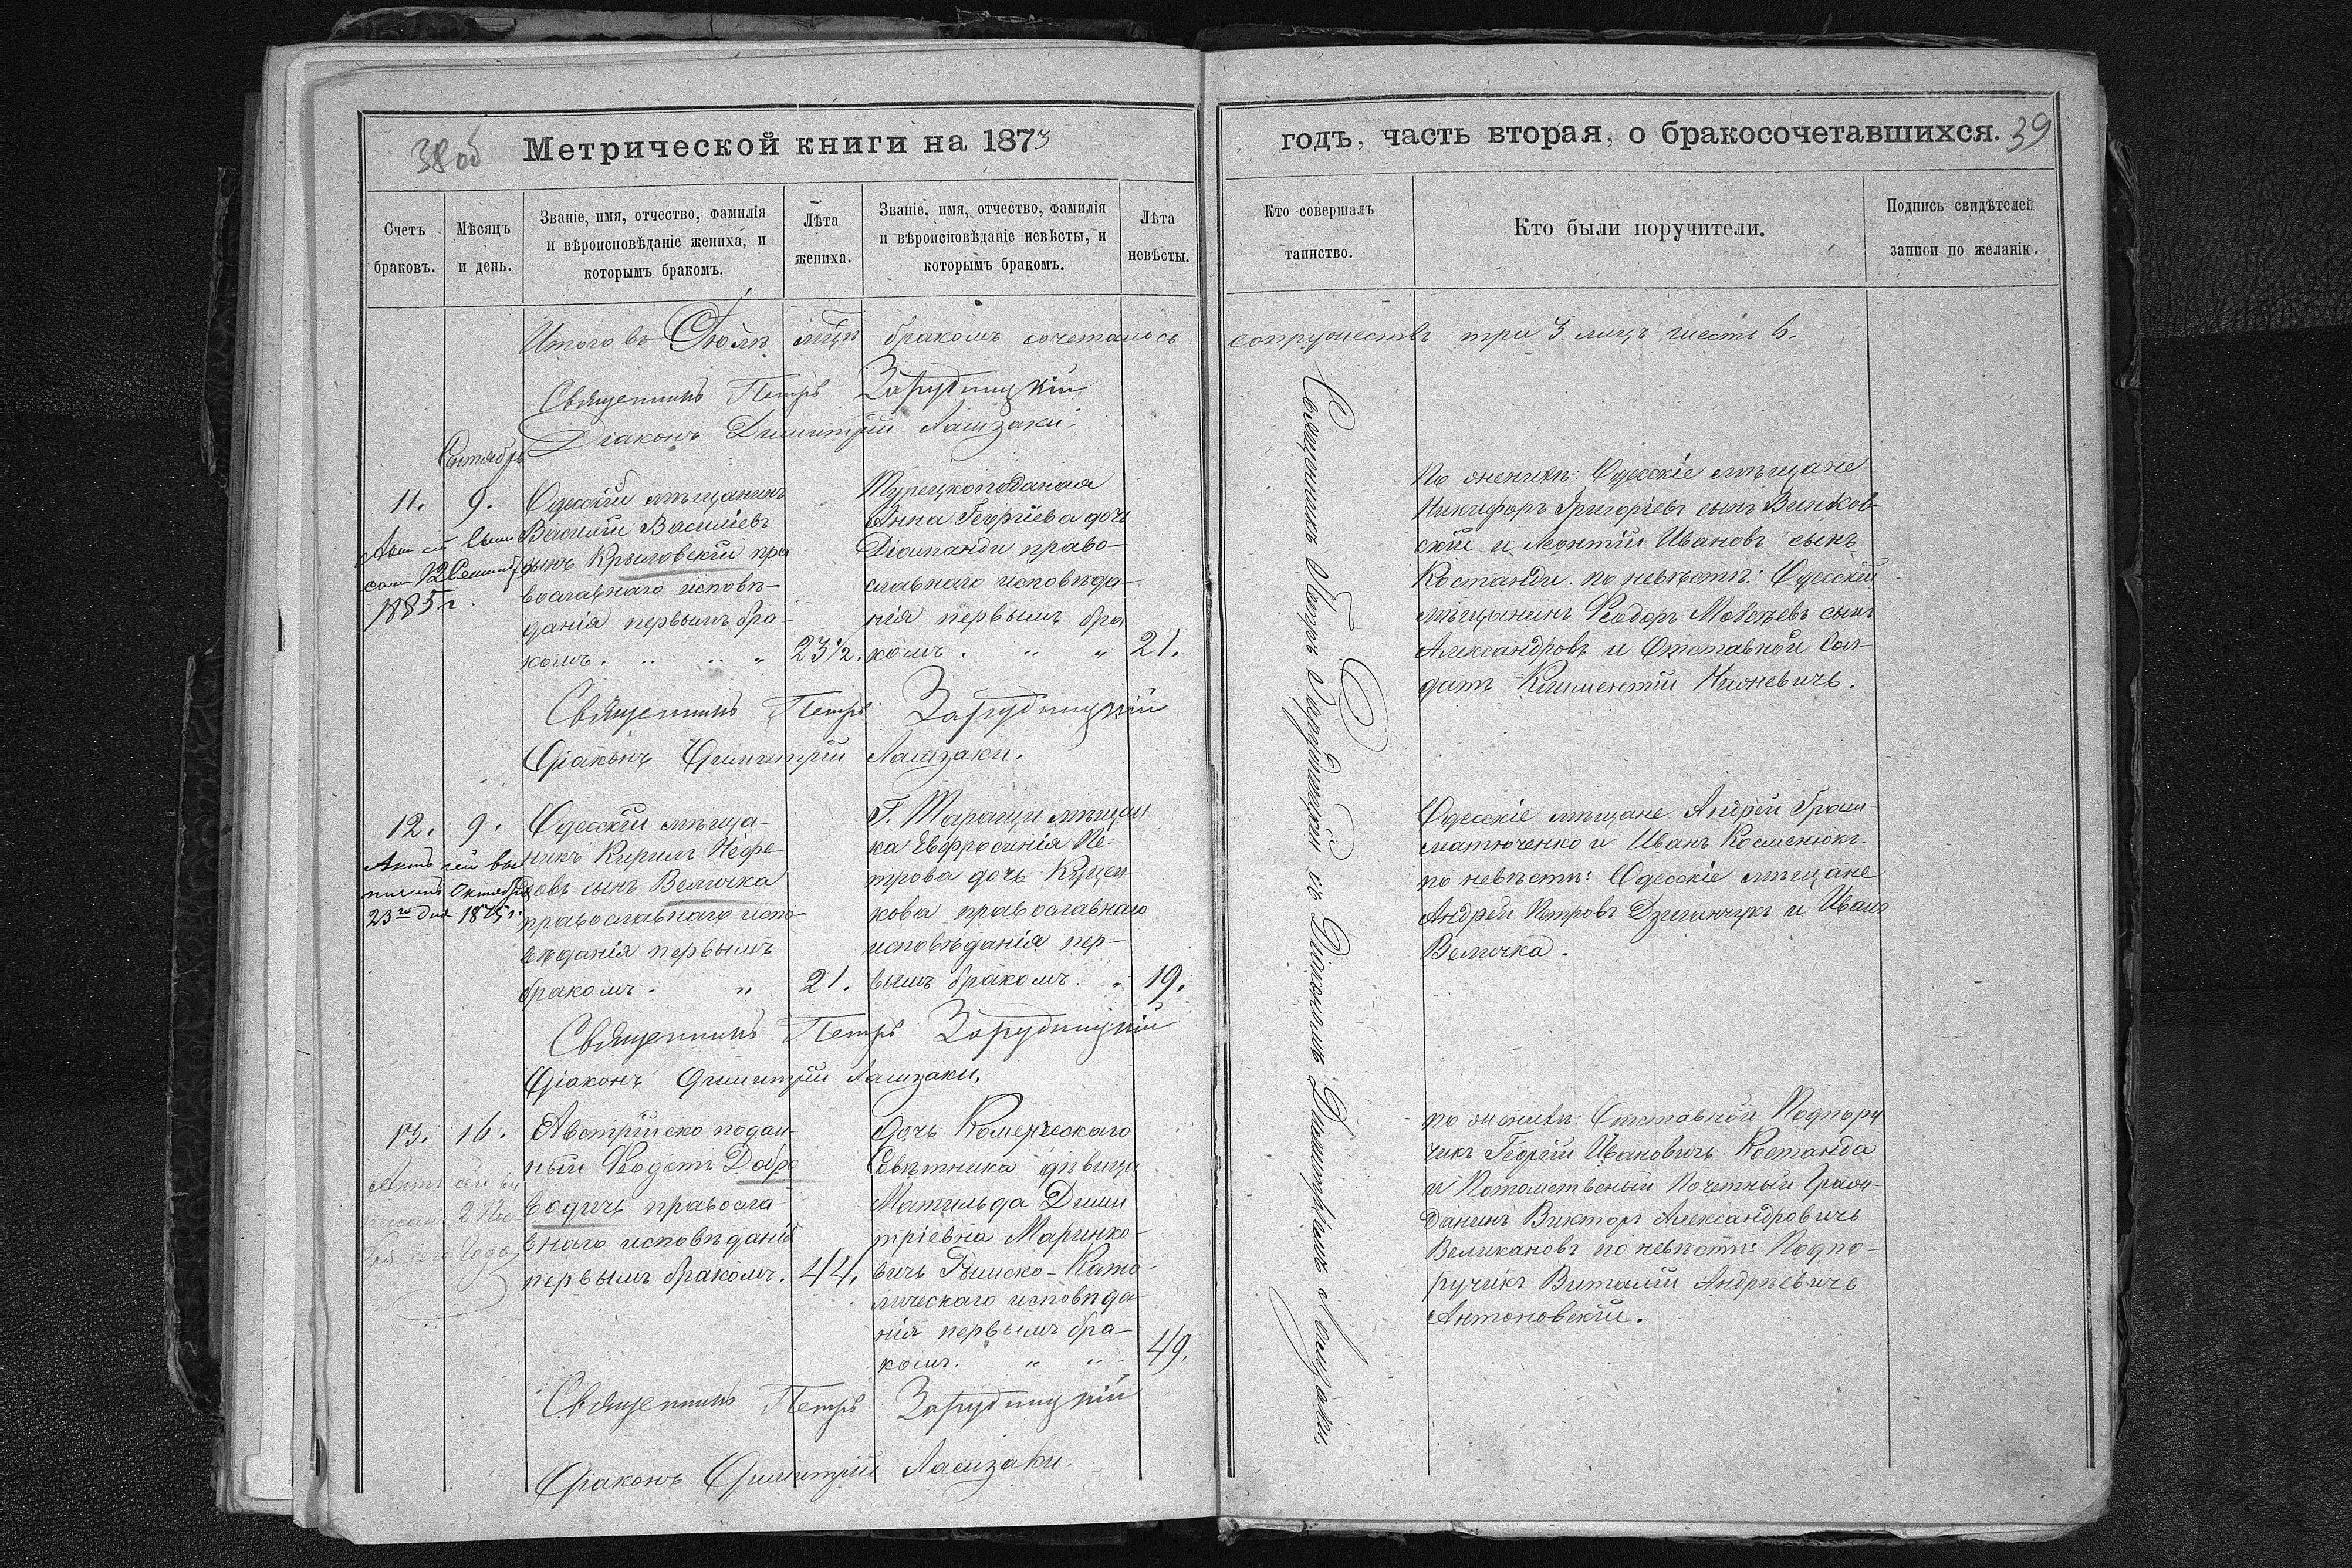 38об
Метрической книги на 1873
Счетъ браковъ.
Мѣсяцъ и день.
Званіе, имя, отчество, фамилія
и вѣроисповѣданіе жениха, и
которымъ бракомъ.
Лѣта жениха.
Званіе, имя, отчество, фамилія
и вѣроисповѣданіе невѣсты, и
которымъ бракомъ.
Лѣта невѣсты.
Итого въ Іюлѣ мцѣ бракомъ сочеталось
Священникъ Петръ Зарудницкій
Діаконъ Димитрій
Сентябрь
11. 9.
Актъ сей выпи
санъ 12 Сентяб
1885 г.
Одесскій мѣщанинъ
Василій Василіевъ
сынъ Крыловскій пра
вославнаго исповѣ-
данія первымъ бра-
комъ. „ „ „
23 1/2.
Турецкоподаная
Анна Георгіева дочь
право-
славнаго исповѣда-
нія первымъ бра
комъ. „ „
21.
Священникъ Петръ Зарудницкій
Діаконъ Димитрій
12. 9.
Актъ сей вы
писанъ Октября
23го дня 1875 г.
Одесскій мѣща-
нинъ Кирилъ Нефе-
довъ сынъ Величка
православнаго испо-
вѣданія первымъ
бракомъ. „
21.
Г. Таращи мѣщан
ка Евфросинія Пе-
трова дочь Куцен-
кова православнаго
исповѣданія пер-
вымъ бракомъ. „
19.
Священникъ Петръ Зарудницкій
Діаконъ Димитрій
13. 16.
Актъ сей вы
писанъ 2 Ноя
бря сего года
Австрійско подан-
ный Феодотъ Добро
водичь правосла
внаго исповѣданія
первымъ бракомъ.
44.
Дочь Комерческаго
Совѣтника дѣвица
Матильда Дими
тріевна Маринко-
вичь Римско-Като-
лическаго исповѣда-
нія первымъ бра-
комъ. „ „
49.
Священникъ Петръ Зарудницкій
Діаконъ Димитрій
годъ, часть вторая, о бракосочетавшихся.
39
Кто совершалъ таинство.
Кто были поручители.
Подпись свидѣтелей
записи по желанію.
супружествъ три 3 лицъ шесть 6.
Священникъ Петръ Зарудницкій съ Діакономъ Димитріемъ
По женихѣ: Одесскіе мѣщане
Никифоръ Григоріевъ сынъ Винков-
скій и Леонтій Ивановъ сынъ
Костанди. по невѣстѣ: Одесскій
мѣщанинъ Феодоръ сынъ
Александровъ и Отставной Сол-
датъ Климентій
Одесскіе мѣщане Андрей Грам-
матюченко и Иванъ Косменюкъ.
по невѣстѣ: Одесскіе мѣщане
Андрей Петровъ Дзиганчукъ и Иванъ
Величка.
по женихѣ: Отставной Подпору
чикъ Георгій Ивановичь Костанда
и Потомственый Почетный Граж-
данинъ Викторъ Александровичь
Великановъ по невѣстѣ: Подпо-
ручикъ Виталій Андреевичь
Антоновскій.